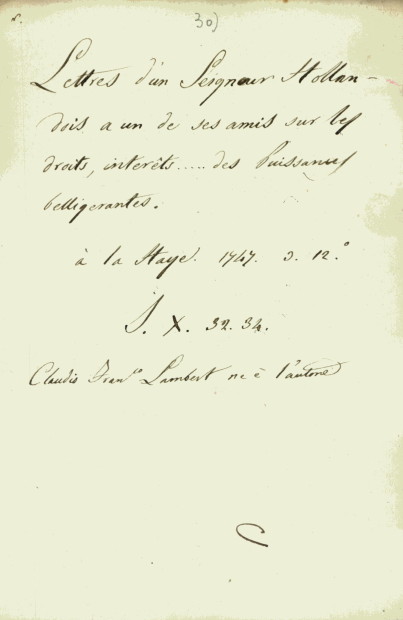 30)
Lettres d'un Seigneur Hollan-
dois a un de ses amis sur les
droits, interêts..... des Puissances
belligerantes.
à la Haye. 1747. 3. 12.°
S. X. 32. 34.
Claudio Fran.co Lambert ne è l'autore